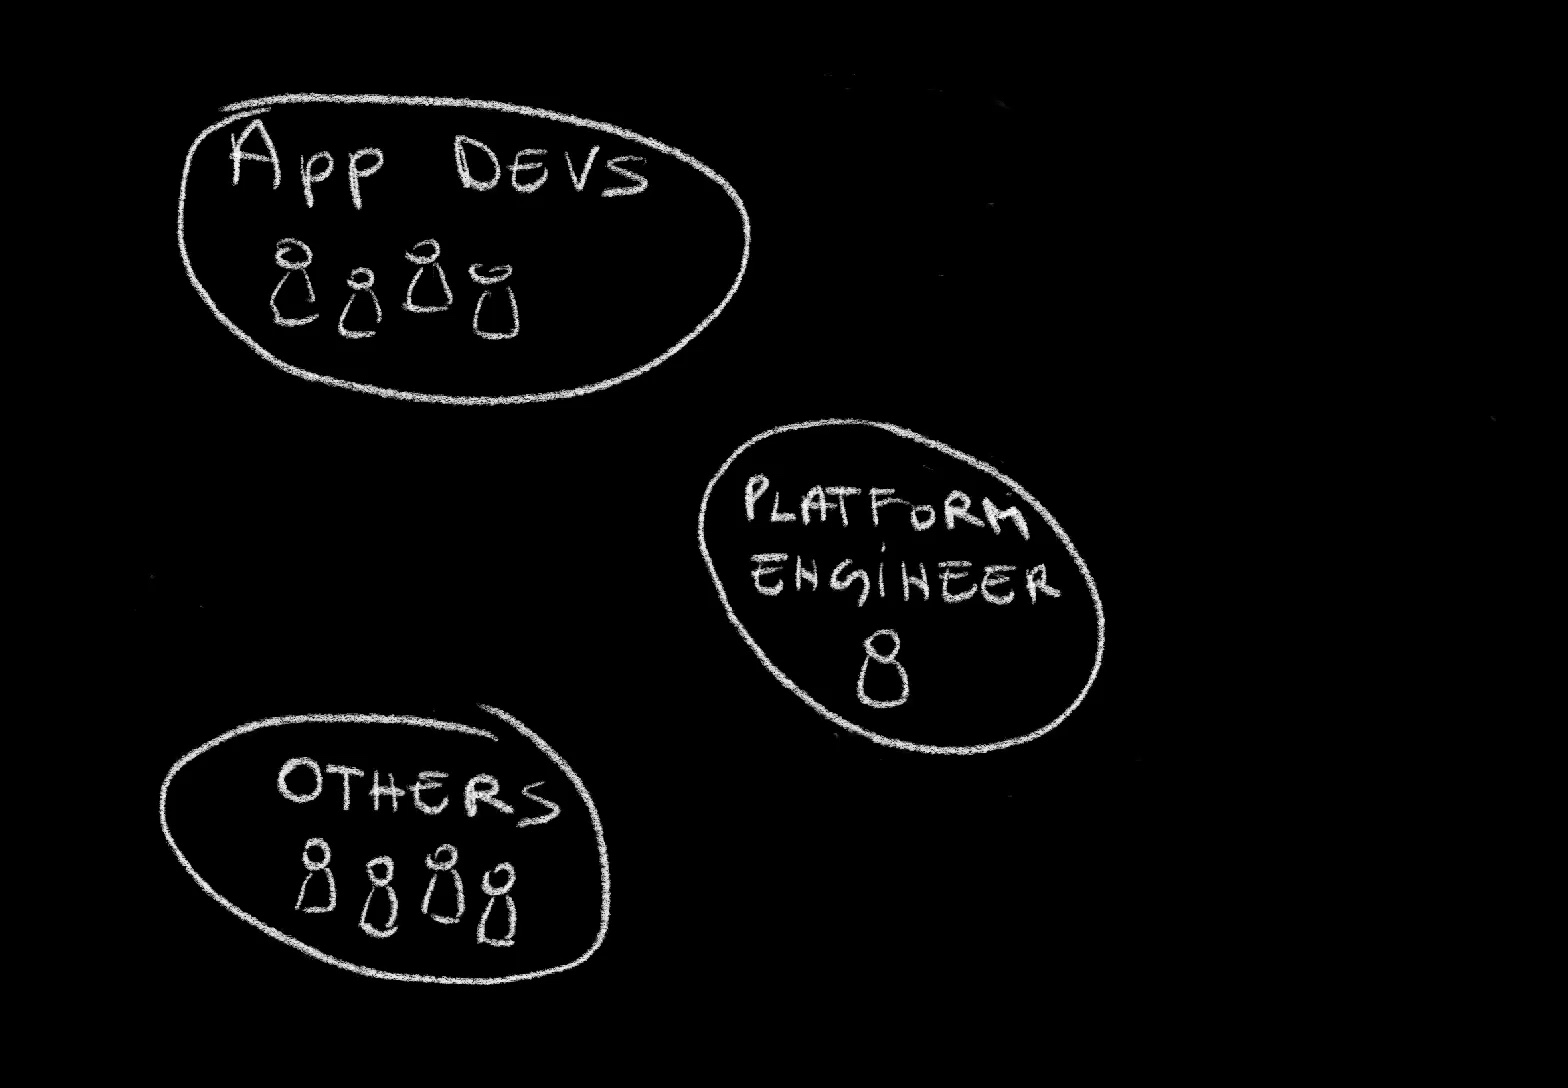 App DEVS
PLATFORM
ENGINEER
OTHERS